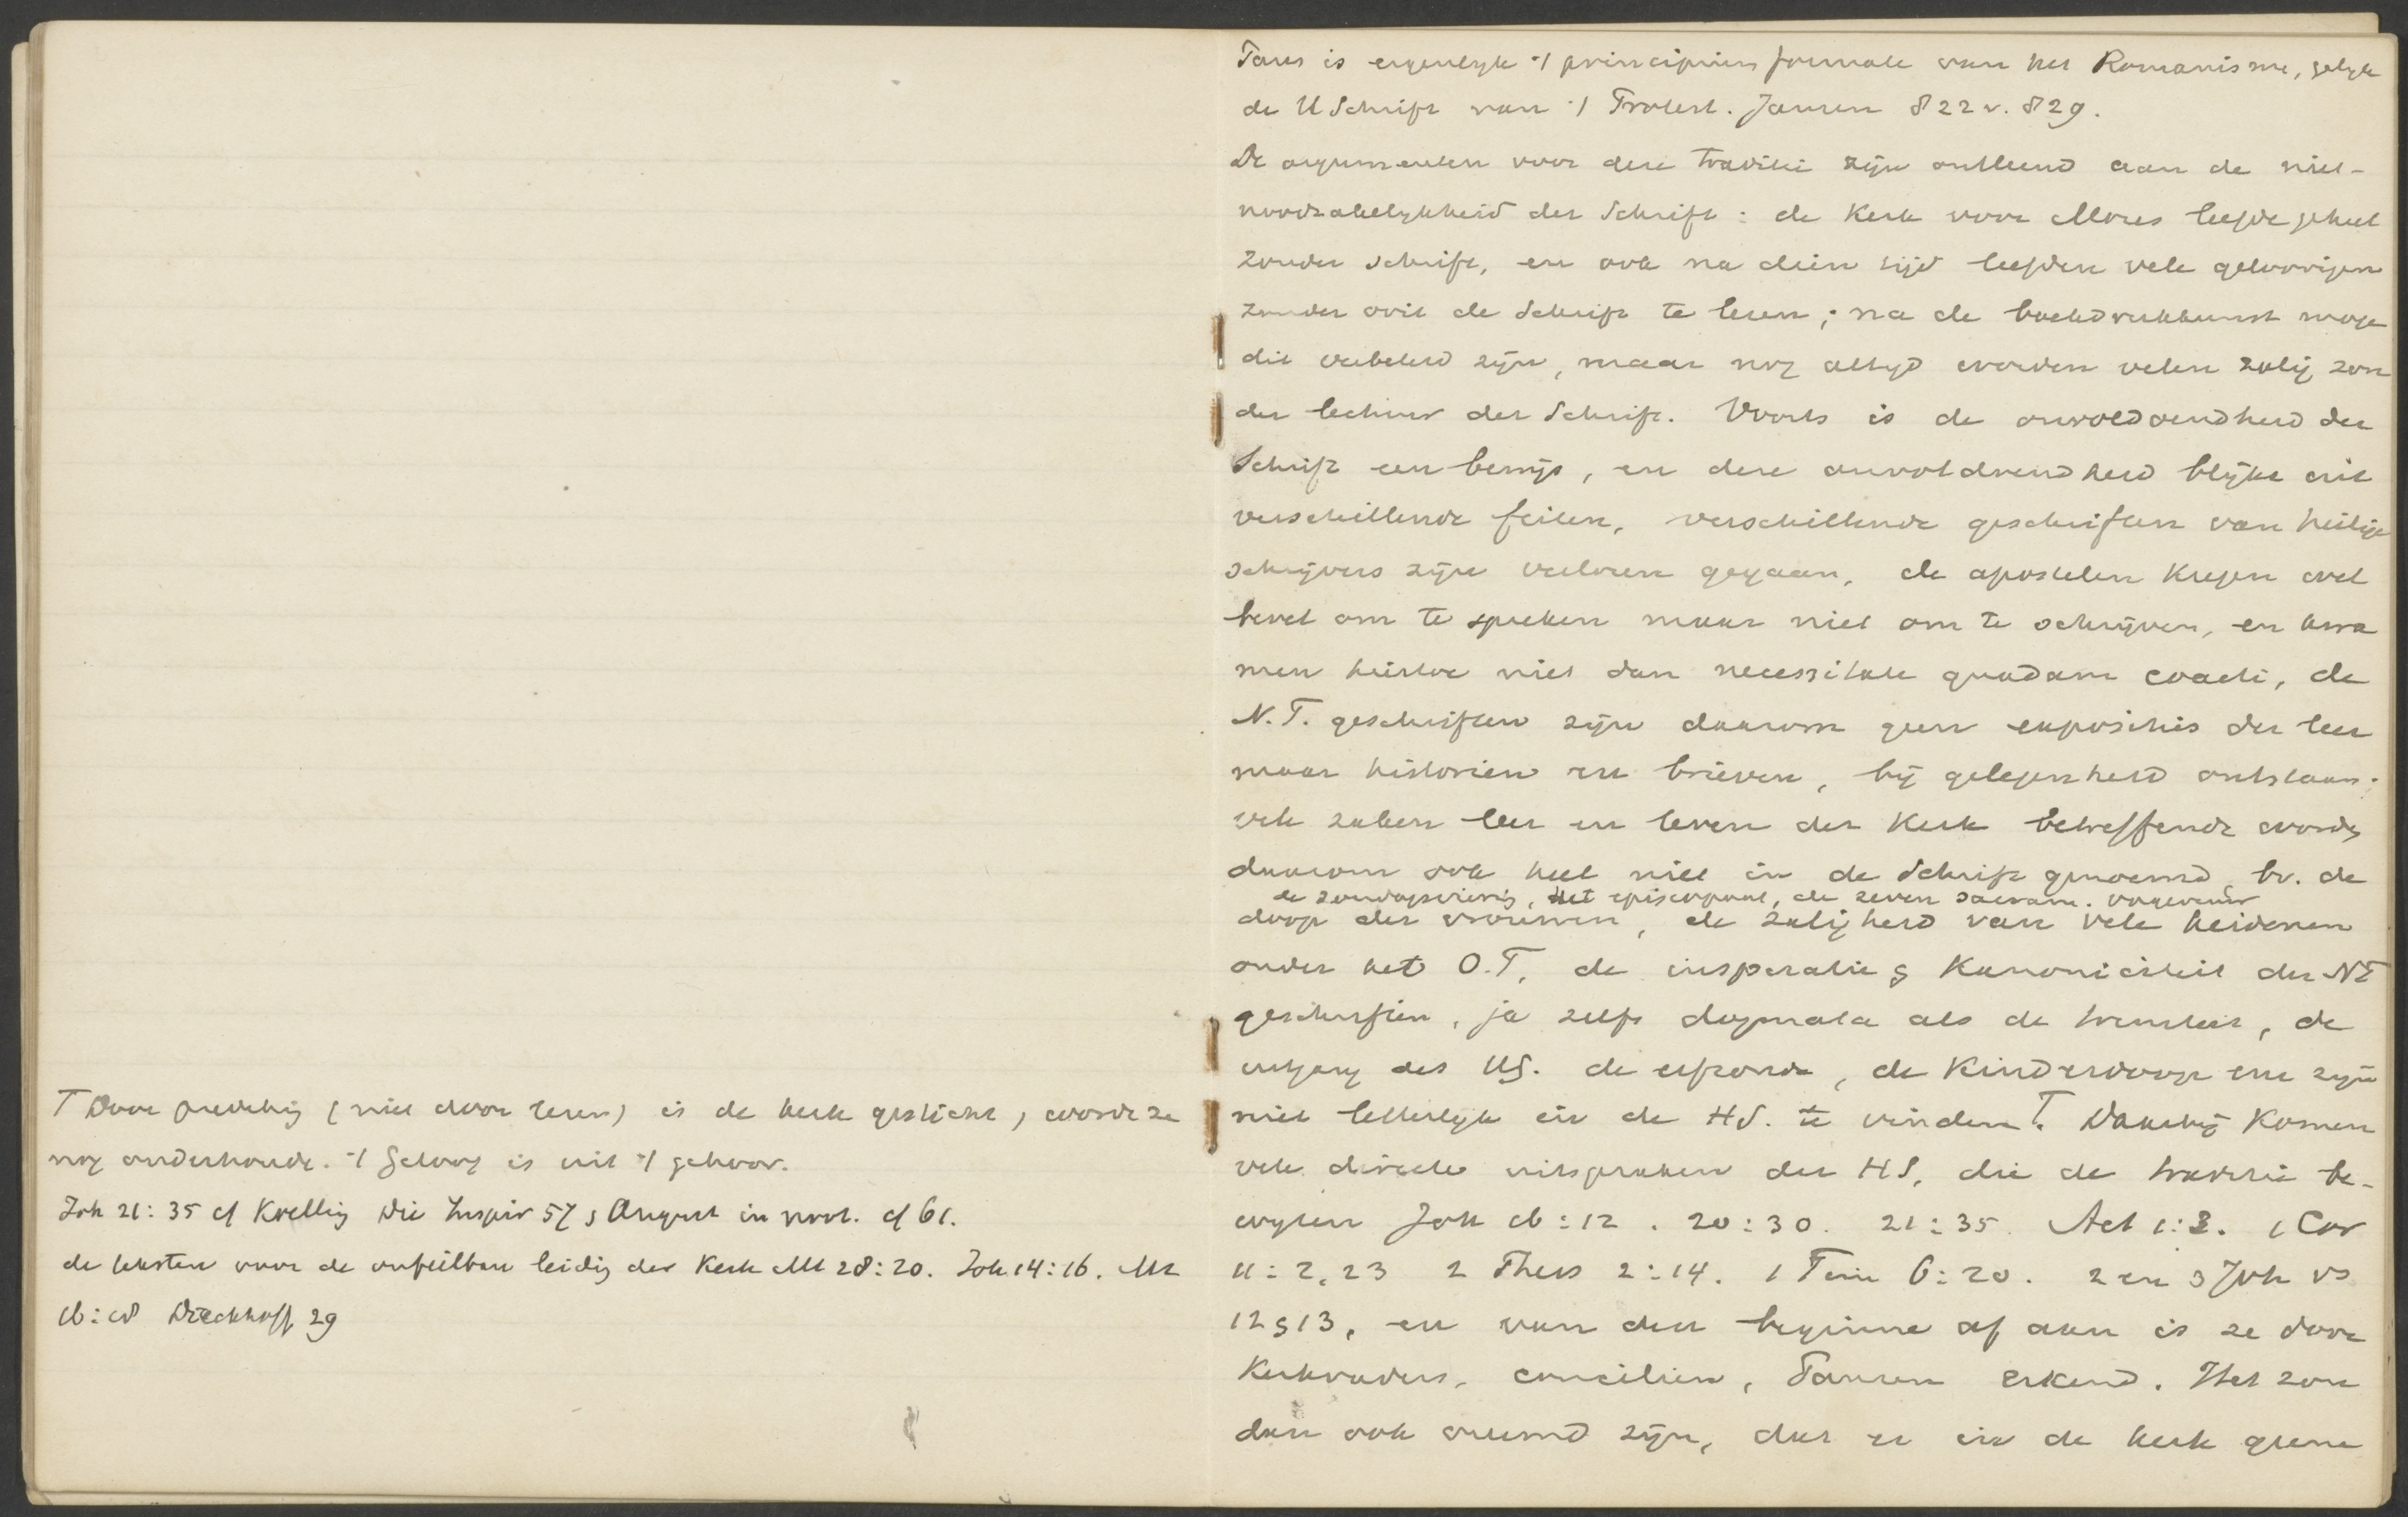 T Door prediking (niet door lezen) is de kerk gesticht, wordt ze
nog onderhoude. 't Geloof is uit 't gehoor.
Joh 21:35 cf Koelling Die Inspir 57 s August in voorl. cf 61.
de teksten voor de onfeilbare leidig der Kerk Mt 28:20. Joh 14:16. Mt
16:18 Dieckhoff 29
Paus is eigenlyk 't principium formale van het Romanisme, gelyk
de H Schrift van 't Protest. Jansen 822 v. 829.
De argumenten voor deze traditie zijn ontleend aan de niet-
noodzakelykheid der Schrift: de Kerk voor Mozes leefde geheel
zonder schrift, en ook na dien tijd leefden vele geloovigen
zonder ooit de Schrift te lezen; na de boekdrukkunst moge
dit verbeterd zijn, maar nog altyd worden velen zalig zon
der lectuur der Schrift. Voorts is de onvoldoendheid der
Schrift een bewijs, en deze onvoldoendheid blijkt uit
verschillende feiten, verschillende geschriften van heilige
schrijvers zijn verloren gegaan, de apostelen kregen wel
bevel om te spreken maar niet om te schrijven, en kwa
men hiertoe niet dan necessitate quadam coacti, de
N.T. geschriften zijn daarom geen expositis der leer
maar historien en brieven, bij gelegenheid ontstaan;
vele zaken leer en leven der Kerk betreffende worden
daarom ook heel niet in de Schrift genoemd, bv. de
de zondagsviering, het episcopaat, de zeven sacram. vagevuur
doop der vrouwen, de zaligheid van vele heidenen
onder het O.T, de inspiratie & Kanoniciteit der NT
geschriften, ja zelfs dogmata als de triniteit, de
uitgang des HG. de erfzonde, de Kinderdoop enz zijn
niet letterlyk in de HS. te vinden T. Daarbij komen
vele directe uitspraken der HS, die de traditie be-
wyzen Joh 16:12. 20:30. 21:35 Act 1:3. 1 Cor
11:2,23 2 Thess 2:14. 1 Tim 6:20. 2 en 3 Joh vs
12 & 13, en van den beginne af aan is ze door
Kerkvaders, concilien, Pausen erkend. Het zou
dan ook vreemd zijn, dat er in de kerk geene